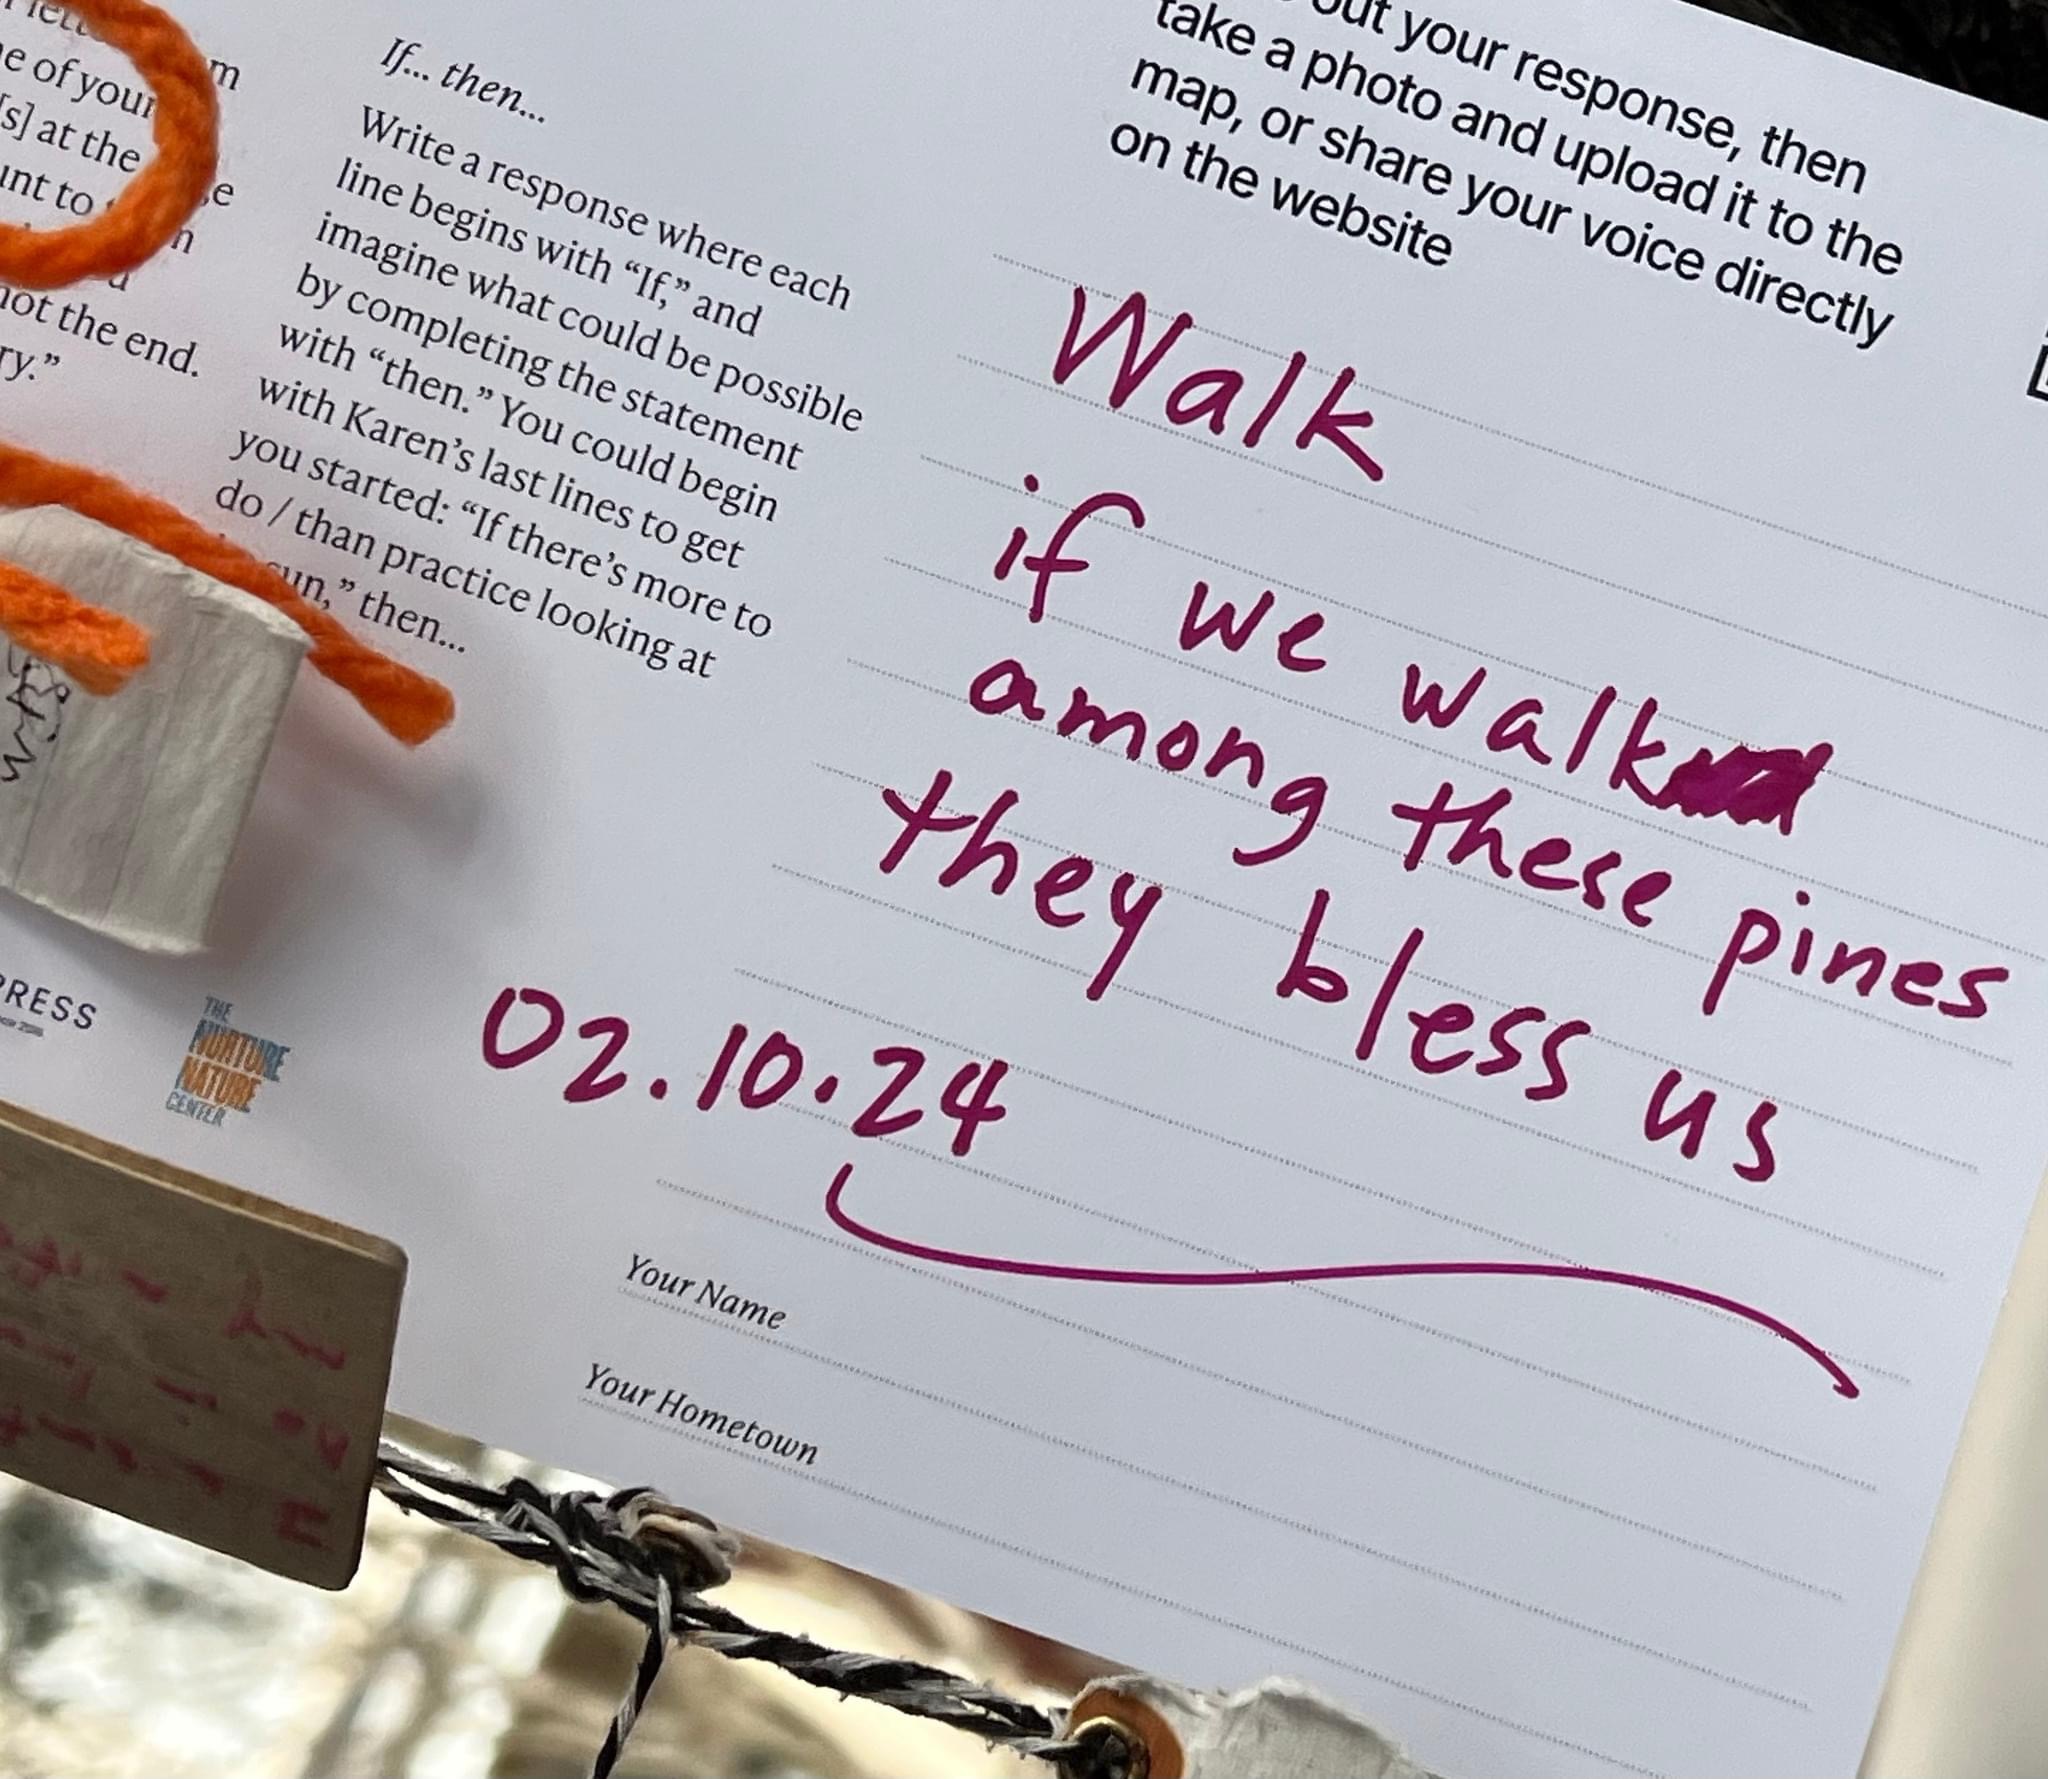 m
e of your
[s] at the
unt to
n
not the end.
ry.”
If... then...
Write a response where each
line begins with “If,” and
imagine what could be possible
by completing the statement
with “then.” You could begin
with Karen’s last lines to get
you started: “If there’s more to
do / than practice looking at
sun,” then...
out your response, then
take a photo and upload it to the
map, or share your voice directly
on the website
Walk
if we walk
among these pines
they bless us
02.10.24
Your Name
Your Hometown
PRESS
THE
NURTURE
NATURE
CENTER